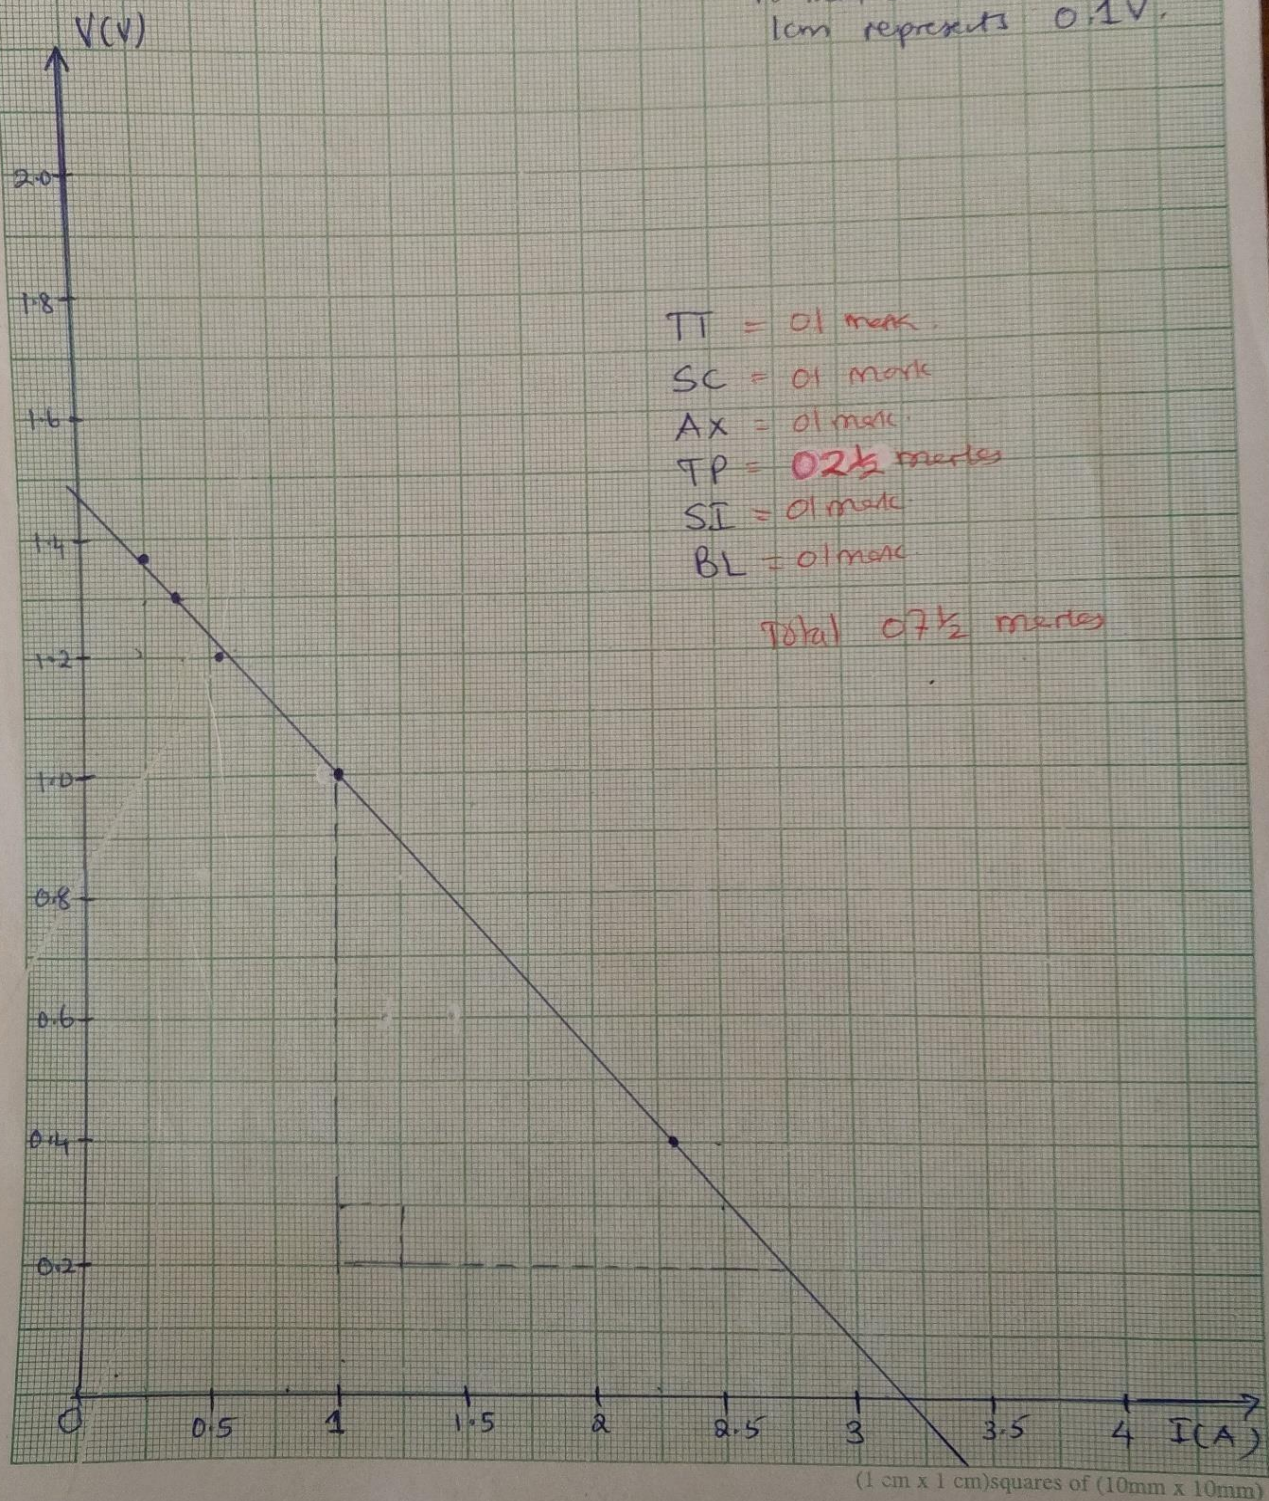 1cm represents 0.1V.
V(V)
2.0
1.8
1.6
1.4
1.2
1.0
0.8
0.6
0.4
0.2
TT = 01 mark.
SC = 01 mark
AX = 01 mark.
TP = 02½ marks
SI = 01 mark.
BL = 01 mark
Total 07½ marks
0 0.5 1 1.5 2 2.5 3 3.5 4 I(A)
(1 cm x 1 cm)squares of (10mm x 10mm)